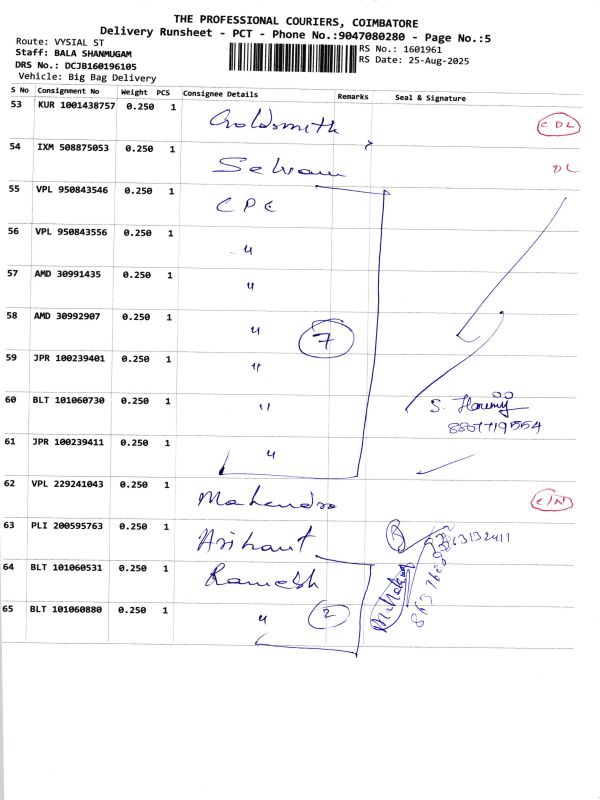 THE PROFESSIONAL COURIERS, COIMBATORE
Delivery Runsheet - PCT - Phone No.:9047080280 - Page No.:5
Route: VYSIAL ST
Staff: BALA SHANMUGAM
RS No.: 1601961
DRS No.: DCJB160196105
RS Date: 25-Aug-2025
Vehicle: Big Bag Delivery
S No Consignment No Weight PCS Consignee Details Remarks Seal & Signature
53 KUR 1001438757 0.250 1 Goldsmith CDL
54 IXM 508875053 0.250 1 Selvam DL
55 VPL 950843546 0.250 1 CPC
56 VPL 950843556 0.250 1 "
57 AMD 30991435 0.250 1 "
58 AMD 30992907 0.250 1 " 7
59 JPR 100239401 0.250 1 "
60 BLT 101060730 0.250 1 " S.
61 JPR 100239411 0.250 1 "
62 VPL 229241043 0.250 1 Mahendra
63 PLI 200595763 0.250 1 Arihant
64 BLT 101060531 0.250 1 Ramesh
65 BLT 101060880 0.250 1 " 2